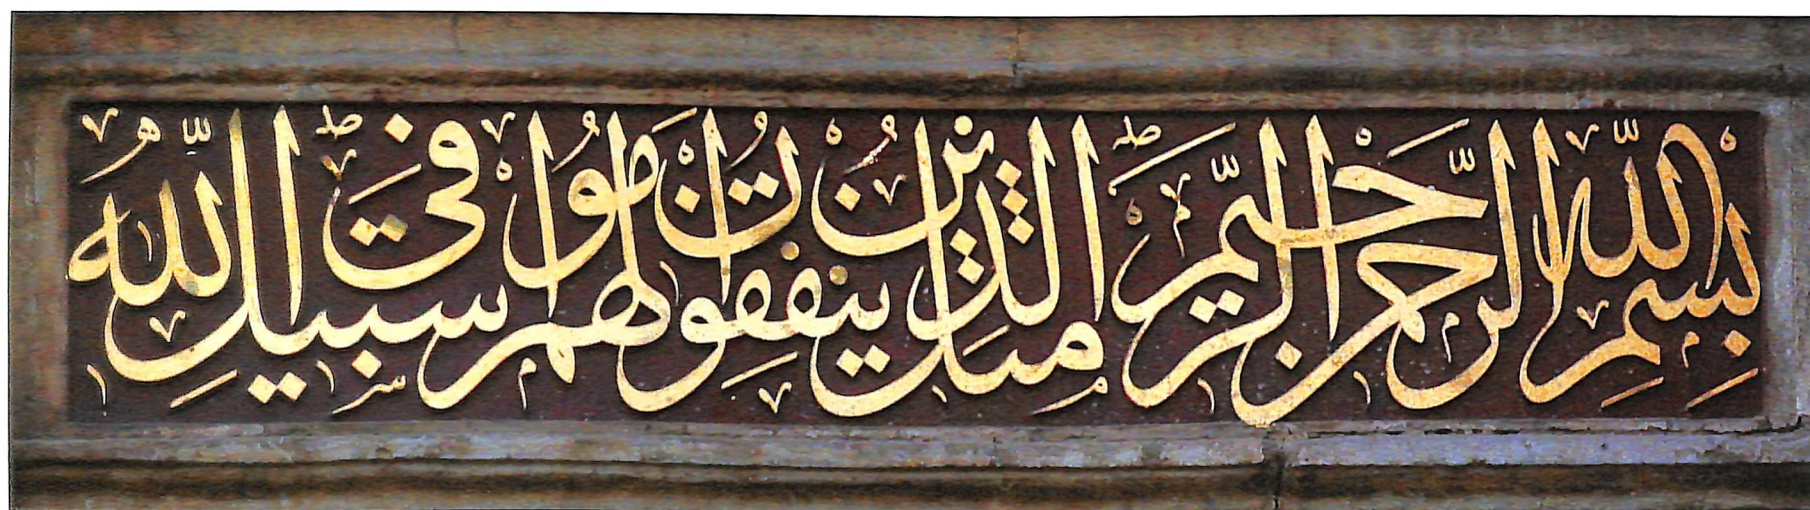 بِسْمِ اللّٰهِ الرَّحْمٰنِ الرَّحِيمِ مثل الذين ينفقون اموالهم في سبيل الله